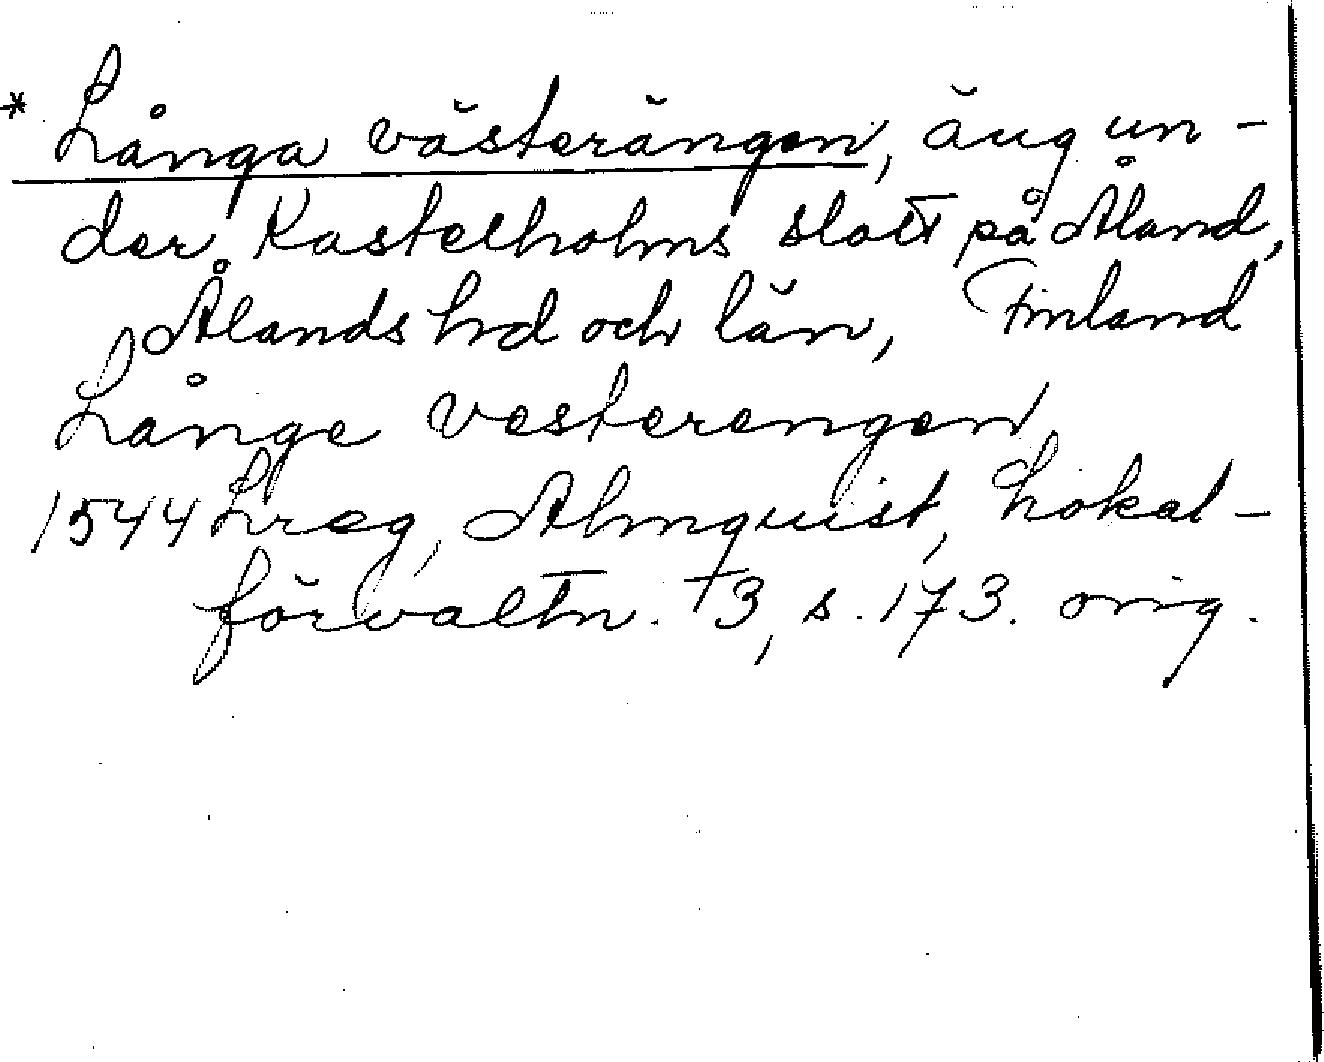 * Långa västerängen, äng un-
der Kastelholms slott på Åland,
Ålands hd och län, Finland
Långe vesterengen
1544 Lreg, Almquist, Lokal-
förvaltn. +3, s. 173. orig.